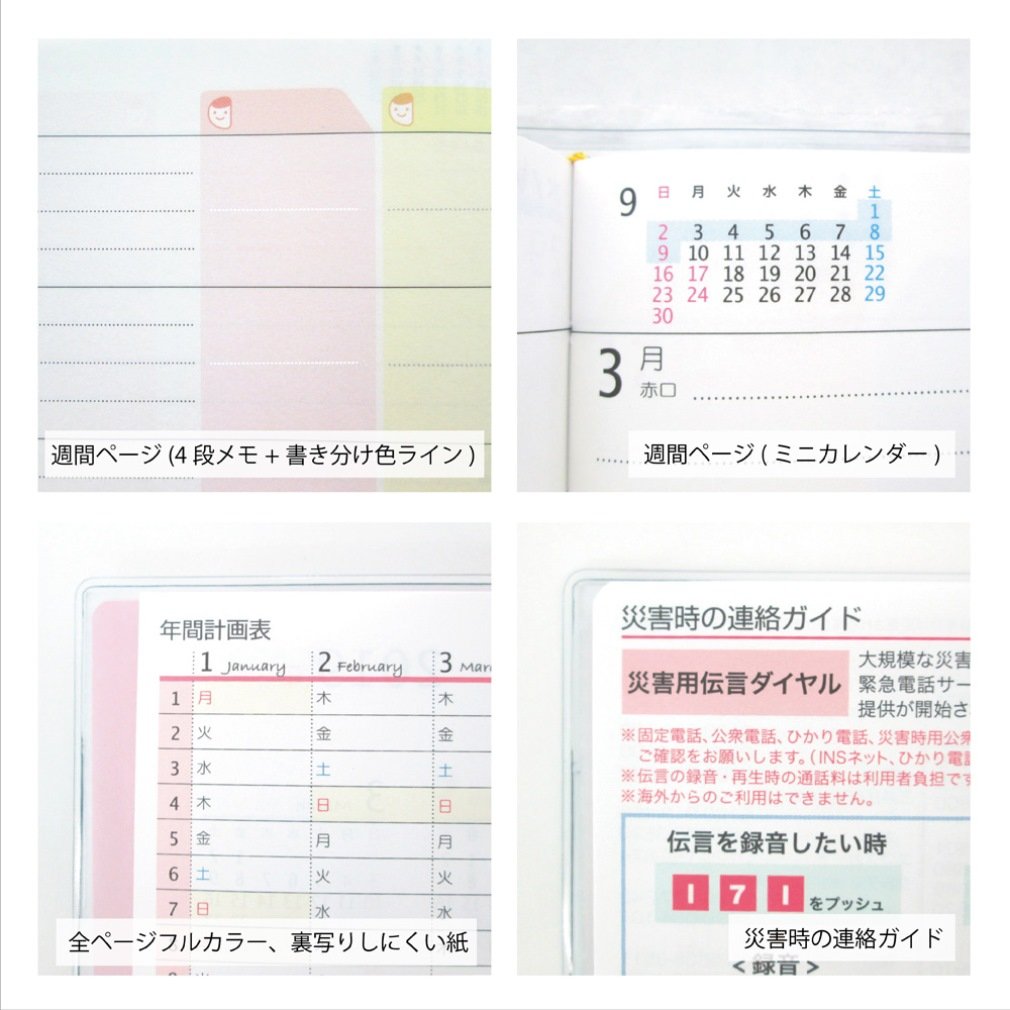 週間ページ (4 段メモ + 書き分け色ライン )
9 日 月 火 水 木 金 土
1
2 3 4 5 6 7 8
9 10 11 12 13 14 15
16 17 18 19 20 21 22
23 24 25 26 27 28 29
30
3 月
赤口
週間ページ ( ミニカレンダー )
年間計画表
1 January 2 February 3 Marc
1 月 木 木
2 火 金 金
3 水 土 土
4 木 日 日
5 金 月 月
6 土 火 火
7 日 水 水
全ページフルカラー、裏写りしにくい紙
災害時の連絡ガイド
災害用伝言ダイヤル
大規模な災害
緊急電話サー
提供が開始さ
※固定電話、公衆電話、ひかり電話、災害時用公衆
ご確認をお願いします。(INSネット、ひかり電話
※伝言の録音・再生時の通話料は利用者負担です
※海外からのご利用はできません。
伝言を録音したい時
1 7 1 をプッシュ
災害時の連絡ガイド
<録音>